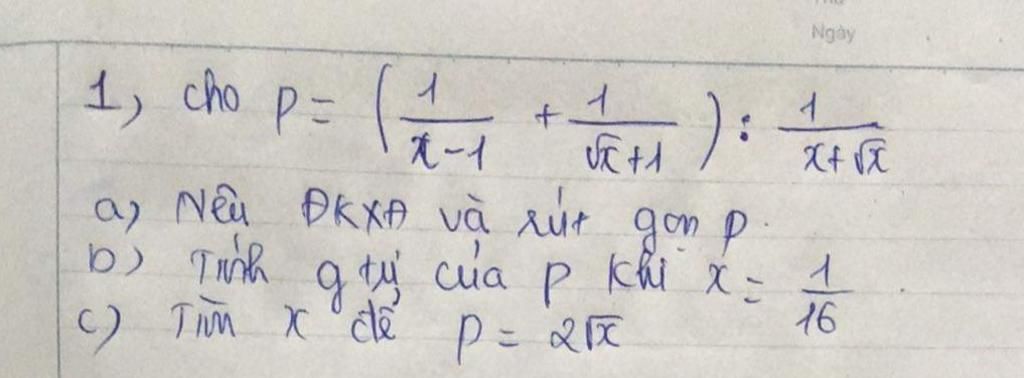 Ngày
1, cho p = (1/(x-1) + 1/(√x+1)) : 1/(x+√x)
a) Nêu ĐKXĐ và rút gọn p.
b) Tính g trị của p khi x = 1/16.
c) Tìm x để p = 2√x